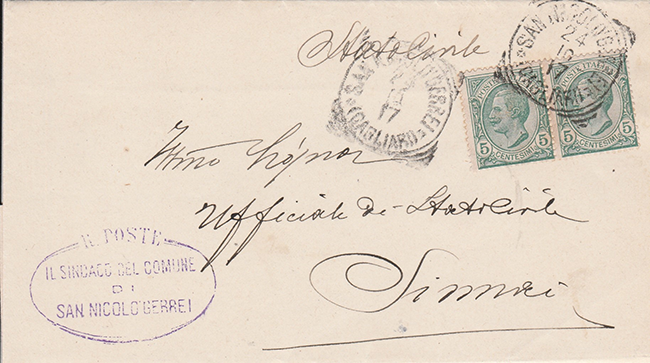 Stato Civile
SAN NICOLO GERREI
24
10
17
(CAGLIARI)
SAN NICOLO GERREI
10
17
(CAGLIARI)
POSTE ITALIANE
5 5
CENTESIMI
POSTE ITALIANE
5 5
CENTESIMI
Illmo Signor
Ufficiale di Stato Civile
Sinnai
R. POSTE
IL SINDACO DEL COMUNE
DI
SAN NICOLO' GERREI